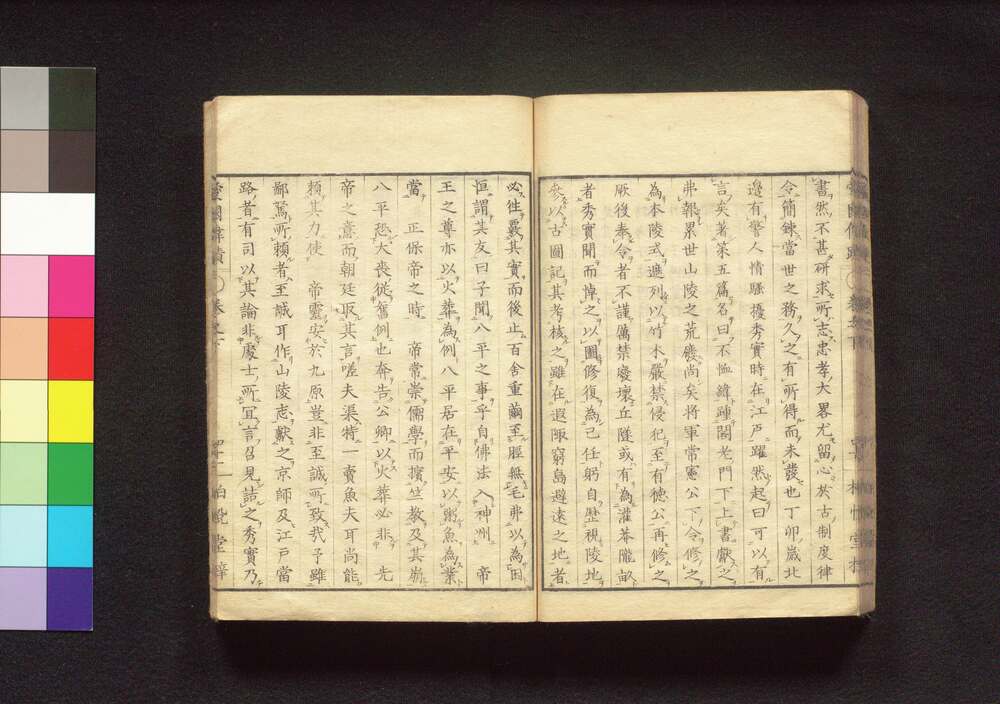 書然不甚研求所志忠孝大畧尤留心於古制度律
令簡錬當世之務久之有所得而未發也丁卯歳北
邊有警人情騒擾秀實時在江戸躍然起曰可以有
言矣著策五篇名曰不恤緯踵閤老門下上書獻之
弗報累世山陵之荒廢尚矣將軍常憲公下令修之
為本陵式遮列以竹木嚴禁侵犯至有徳公再修之
厥後奉令者不謹厲禁廢壞丘隧或有為灌莽隴畝
者秀實聞而悼之以圖修復為己任躬自歴視陵地
參以古圖記其考核之雖在遐陬窮島避遠之地者
必徃覈其實而後止百舍重繭至脛無毛弗以為田
恒謂其友曰子聞八平之事乎自佛法入神州 帝
王之尊亦以火葬為例八平居在平安以鬻魚為業
當 正保帝之時 帝常崇儒學而擯竺教及其崩
八平恐大喪從舊例也奔告公卿以火葬必非 先
帝之意而朝廷取其言嗟夫渠特一賣魚夫耳尚能
頼其力使 帝靈安於九原豈非至誠所致哉予雖
鄙駑所頼者至誠耳作山陵志獻之京師及江戸當
路者有司以其論非處士所宜言召見詰之秀實乃